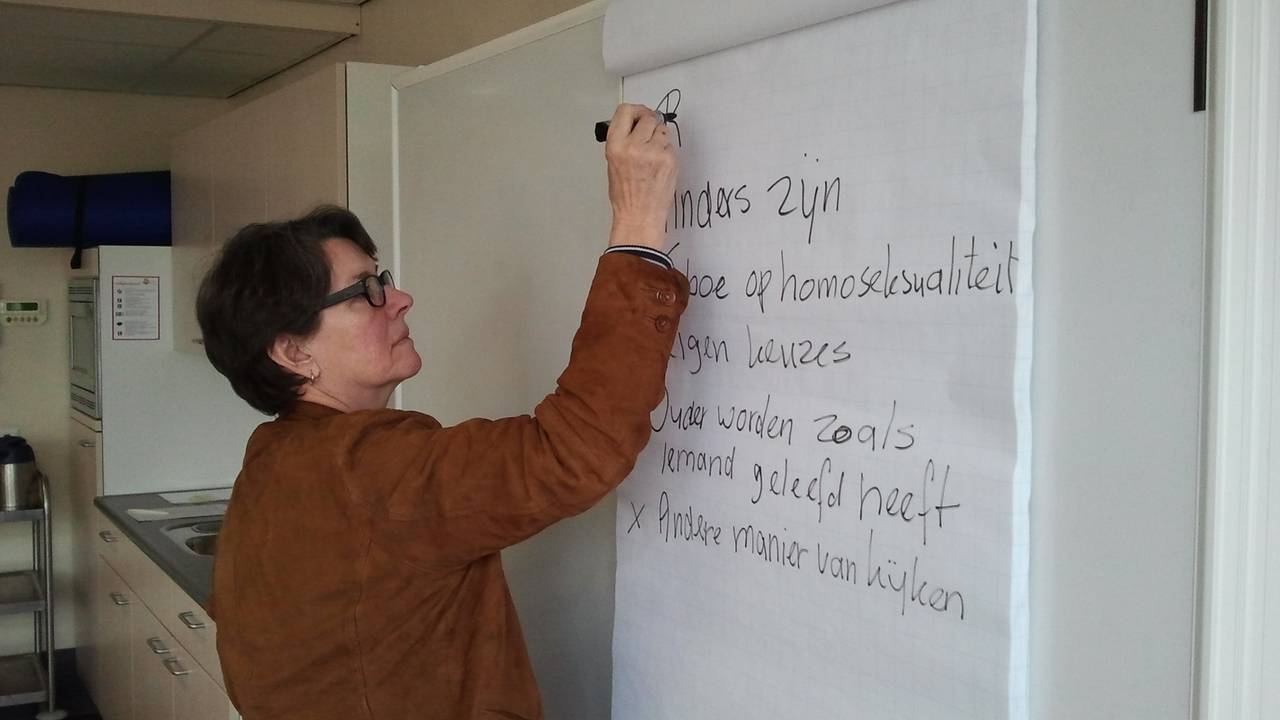 R
Anders zijn
Taboe op homoseksualiteit
Eigen keuzes
Ouder worden zoals
iemand geleefd heeft
x Andere manier van kijken